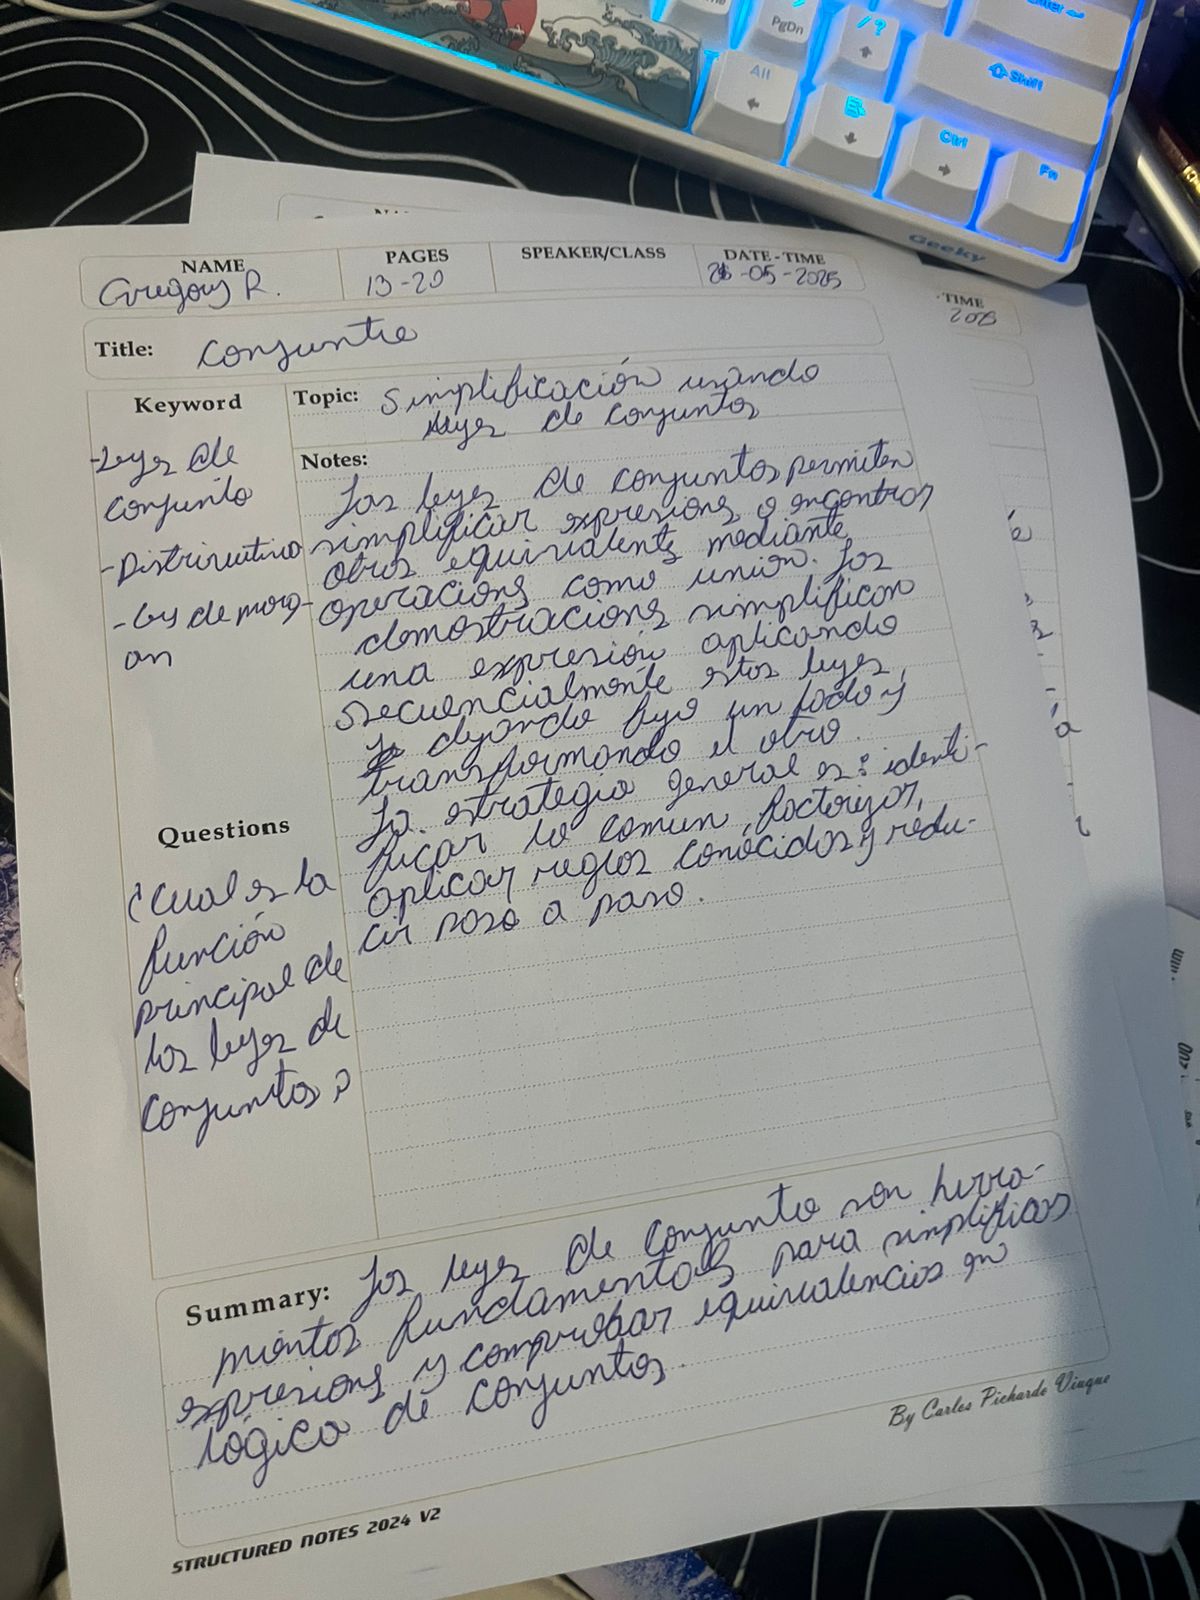 PgDn
/ ?
Alt
Shift
Ctrl
Fn
Geeky
NAME
Gregory R.
PAGES
13-20
SPEAKER/CLASS
DATE-TIME
26-05-2025
TIME
2025
Title: Conjunto
Keyword
-Leyes de
conjunto
-Distributiva
-Leys de morg-
an
Topic: Simplificación usando
leyes de conjuntos
Notes:
Las leyes de conjuntos permiten
simplificar expresions o encontrar
otras equivalents mediante
operacions como union. Las
demostracions simplifican
una expresión aplicando
secuencialmente estas leyes,
dejando fijo un lado y
transformando el otro.
La estrategia general es: identi-
ficar lo comun, factorizar,
aplicar reglas conocidas y redu-
cir paso a paso.
Questions
¿Cual es la
función
principal de
las leyes de
conjuntos?
Summary: Las leyes de conjunto son herra-
mientas fundamentals para simplificar
expresions y comprobar equivalencias en
lógica de conjuntos.
By Carlos Pichardo Viuque
STRUCTURED NOTES 2024 V2